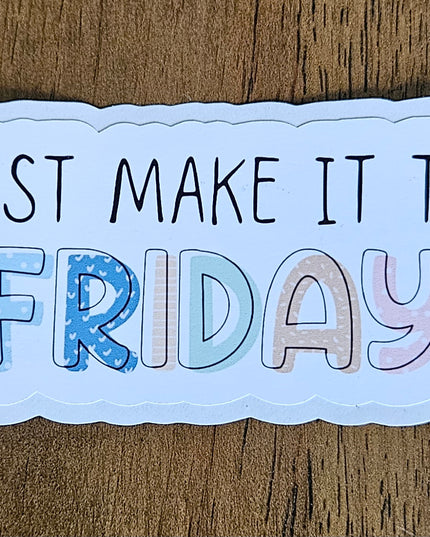 ST MAKE IT T
FRIDAY